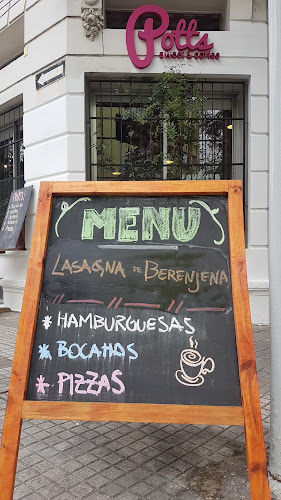 Potts
sweet & coffee
MENU
LASAGNA DE BERENJENA
* HAMBURGUESAS
* BOCATAS
* PIZZAS